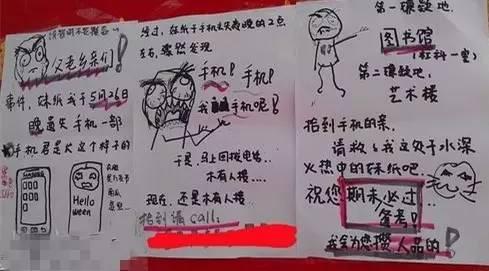 父老乡亲们!
事件,妹纸我于5月26日
晚遗失手机一部
手机君是长这个样子的
Hello
ween
经过,妹纸于手机丢失当晚的2点
左右,骤然发现
手机!手机!
我手机呢!
于是,马上回拨电话…
木有人接……
现在,还是木有人接
拾到请call:
第一嫌疑地:
图书馆
第二嫌疑地:
艺术楼
拾到手机的亲,
请救救我这处于水深
火热中的妹纸吧.
祝您期末必过
备考!
我会为您攒人品的!